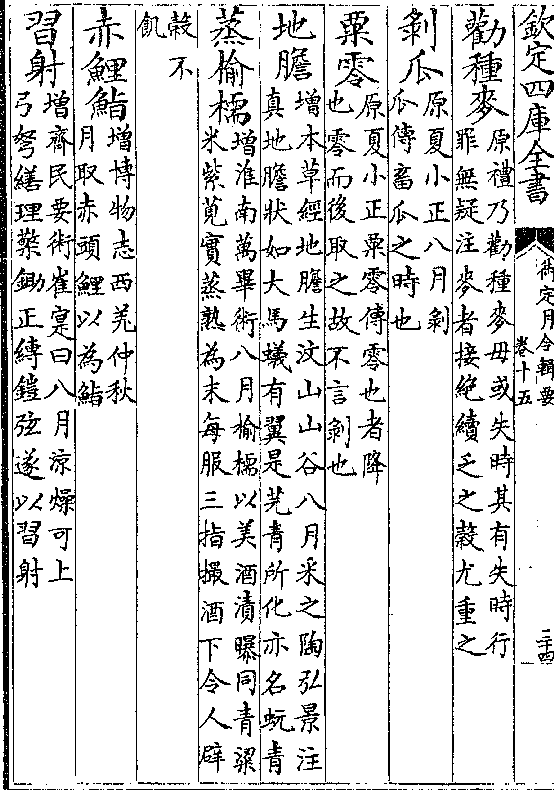 欽定四庫全書
御定月令輯要
卷十五
二十四
勸種麥原禮乃勸種麥毋或失時其有失時行
罪無疑注麥者接絶續乏之穀尤重之
剝瓜原夏小正八月剝
瓜傳畜瓜之時也
粟零原夏小正粟零傳零也者降
也零而後取之故不言剝也
地膽增本草經地膽生汶山山谷八月采之陶弘景注
真地膽狀如大馬蟻有翼是芫青所化亦名蚖青
蒸榆檽增淮南萬畢術八月榆檽以美酒漬曝同青粱
米紫莧實蒸熟為末每服三指撮酒下令人辟
穀不
飢
赤鯉鮨增博物志西羌仲秋
月取赤頭鯉以為鮨
習射增齊民要術崔寔曰八月涼燥可上
弓弩繕理檠鋤正縛鎧弦遂以習射